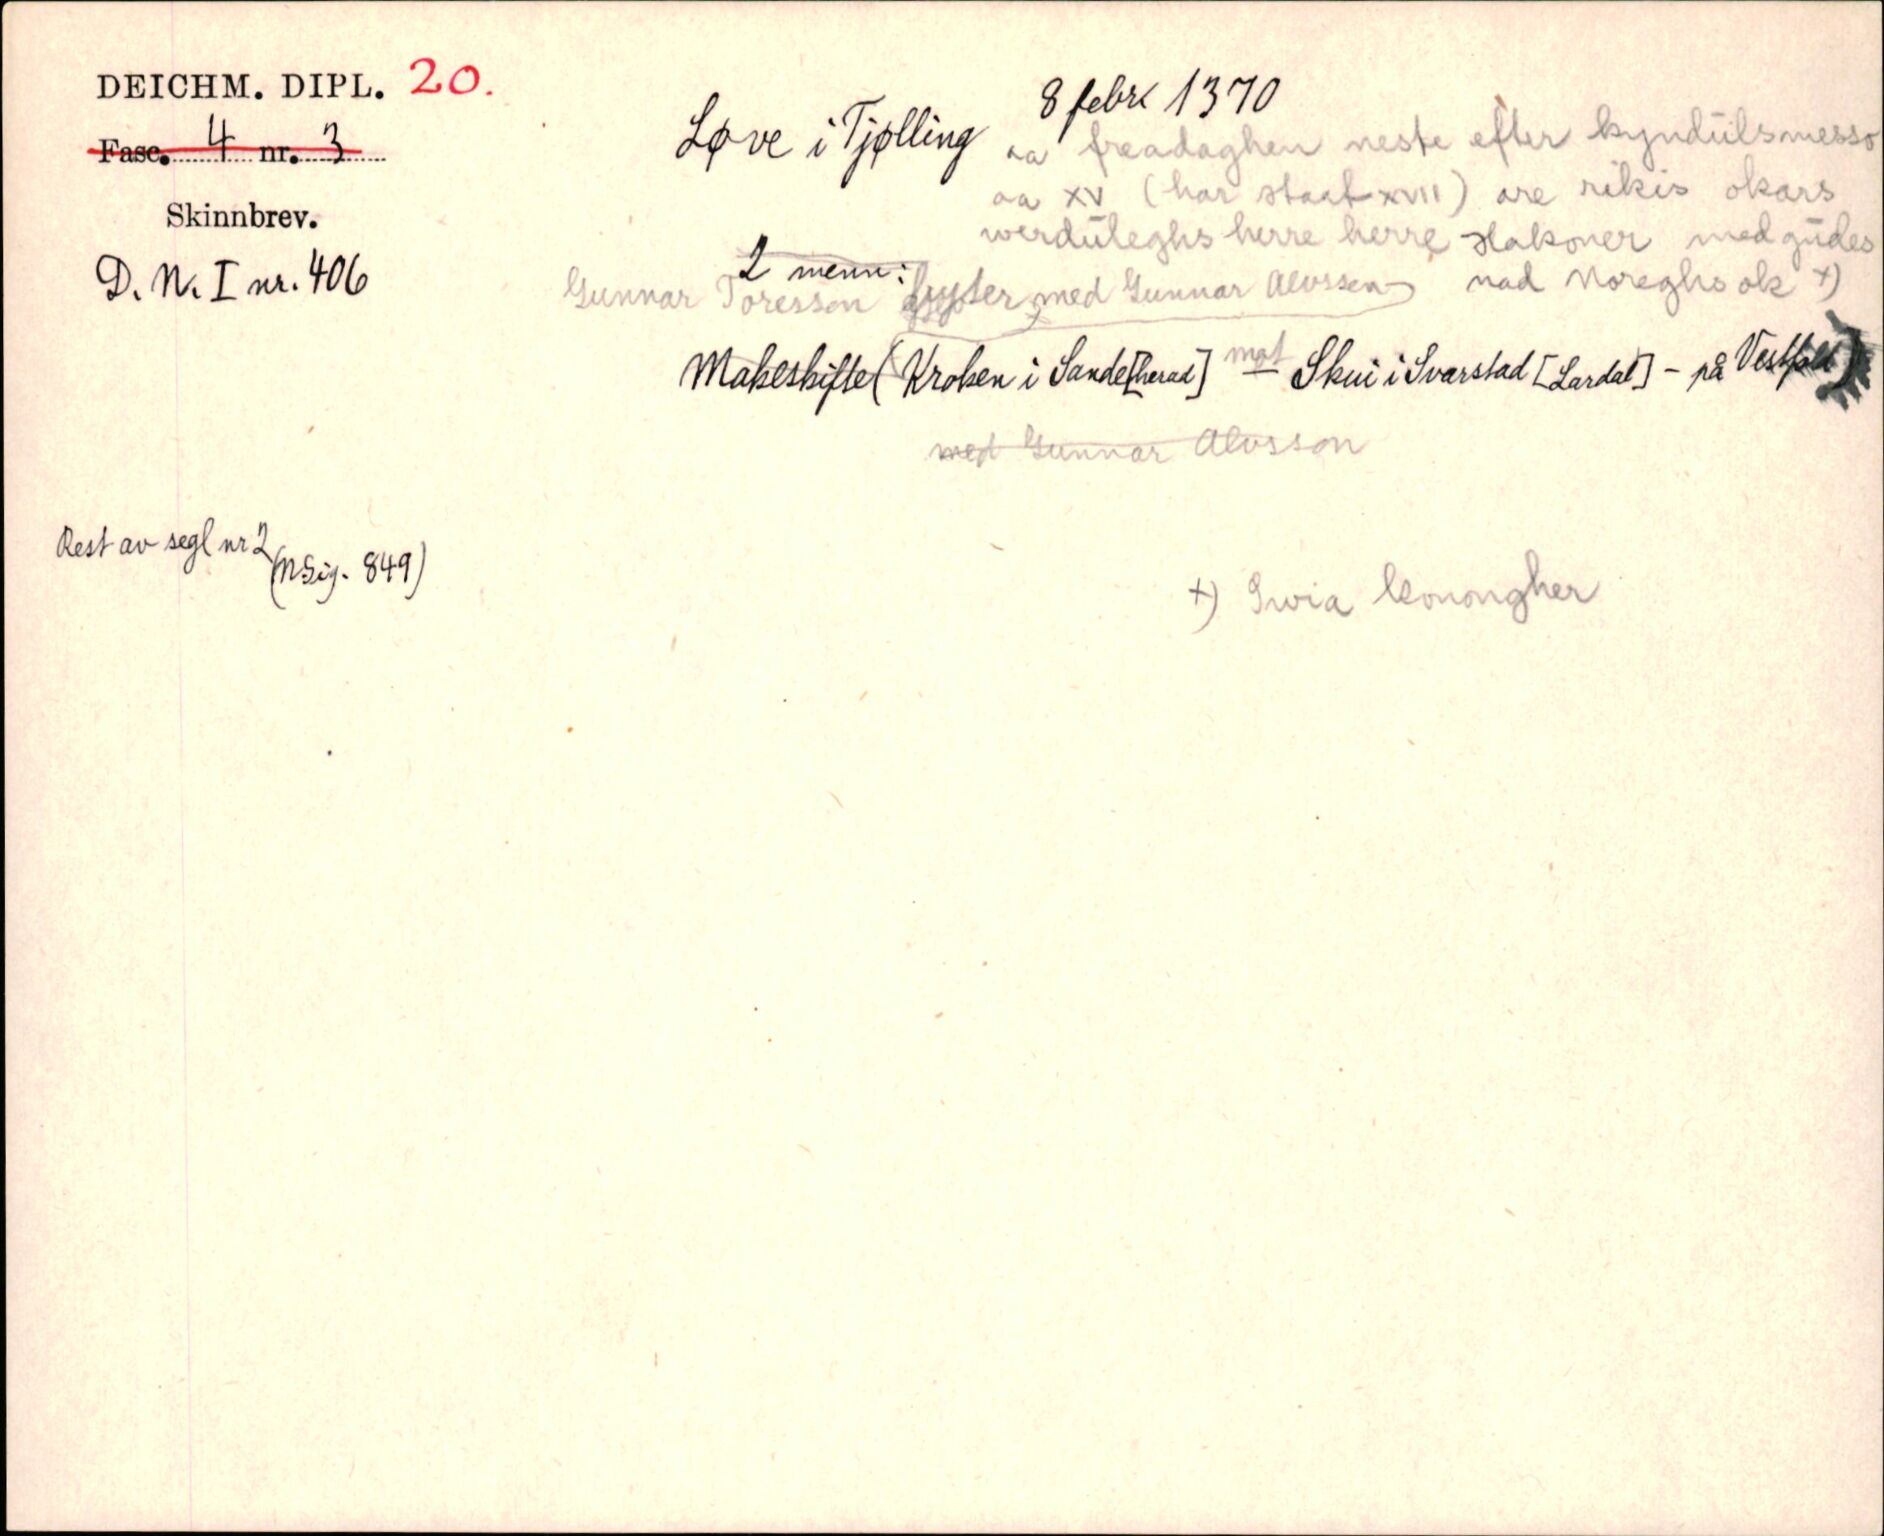 DEICHM. DIPL. 20.
Fasc. 4 nr. 3
Skinnbrev.
D. N. I nr. 406
Løve i Tjølling
8 febr 1370
aa freadaghen neste efter kyndülsmesso
aa XV (har staat XVII) are rikis okars
werdüleghs herre herre Hakoner med güdes
nad Noreghs ok +)
2 menn:
Gunnar Toresson byter med Gunnar Alvssen
Makeskifte (Kroken i Sande[herad] mot Skui i Svarstad [Lardal] - på Vestfold)
med Gunnar Alvsson
Rest av segl nr 2
(N.Sig. 849)
+) Swia konongher